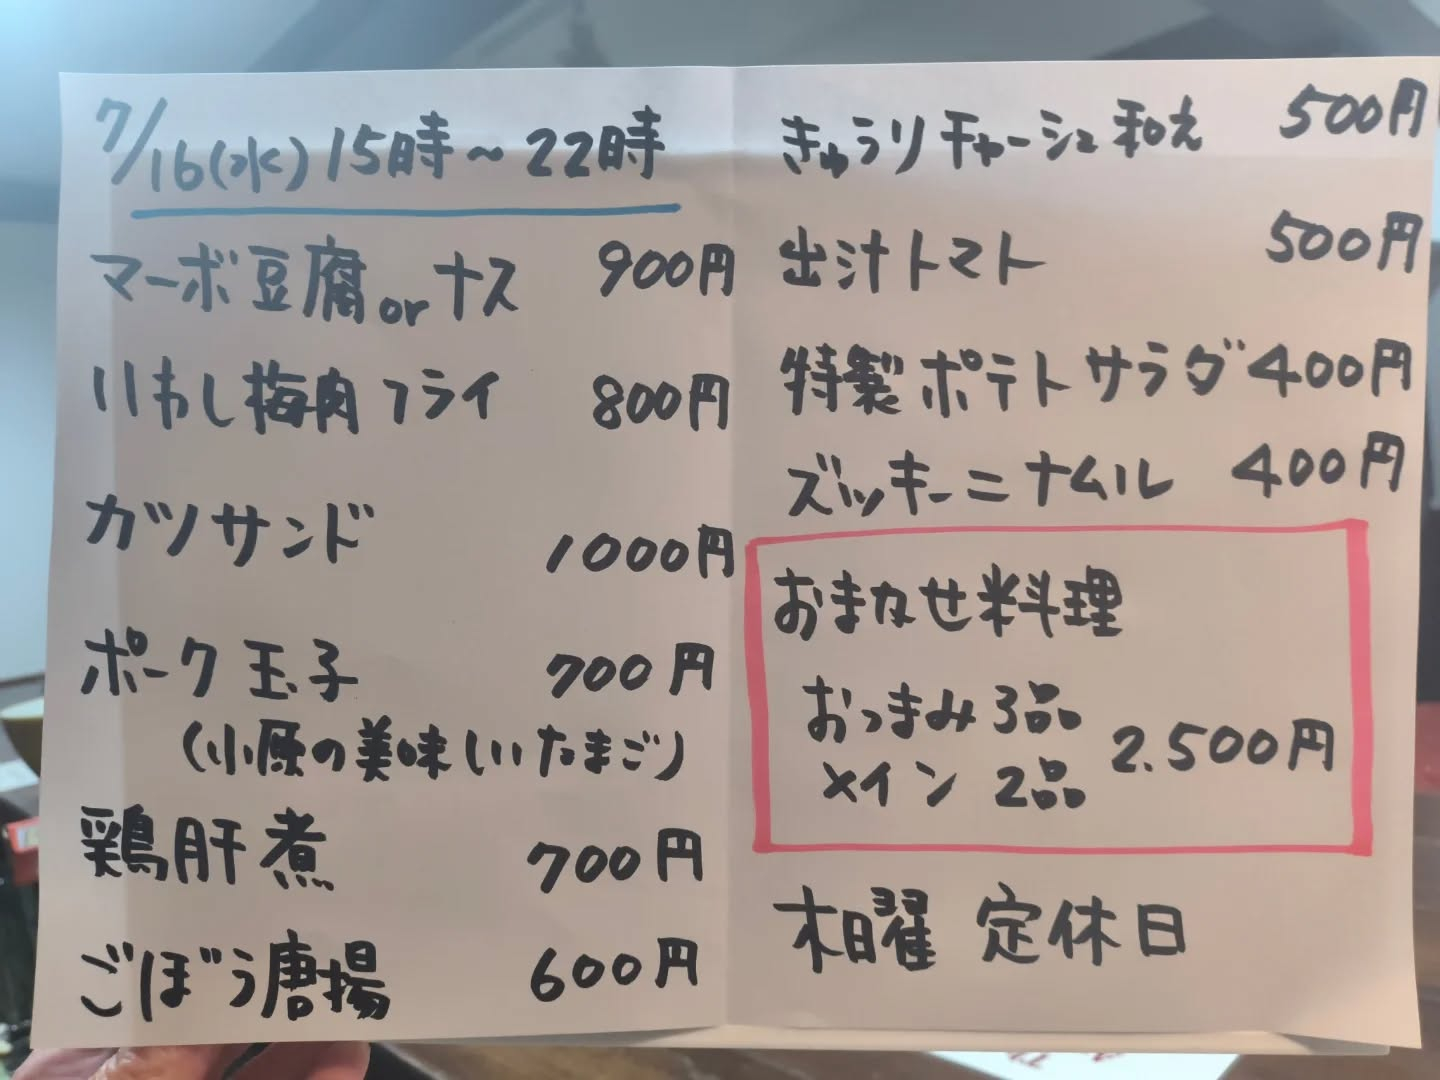 7/16(水)15時～22時
マーボ豆腐orナス 900円
いわし梅肉フライ 800円
カツサンド 1000円
ポーク玉子 700円
(小原の美味しいたまご)
鶏肝煮 700円
ごぼう唐揚 600円
きゅうりチャーシュ和え 500円
出汁トマト 500円
特製ポテトサラダ 400円
ズッキーニナムル 400円
おまかせ料理
おつまみ3品
メイン2品 2.500円
木曜 定休日